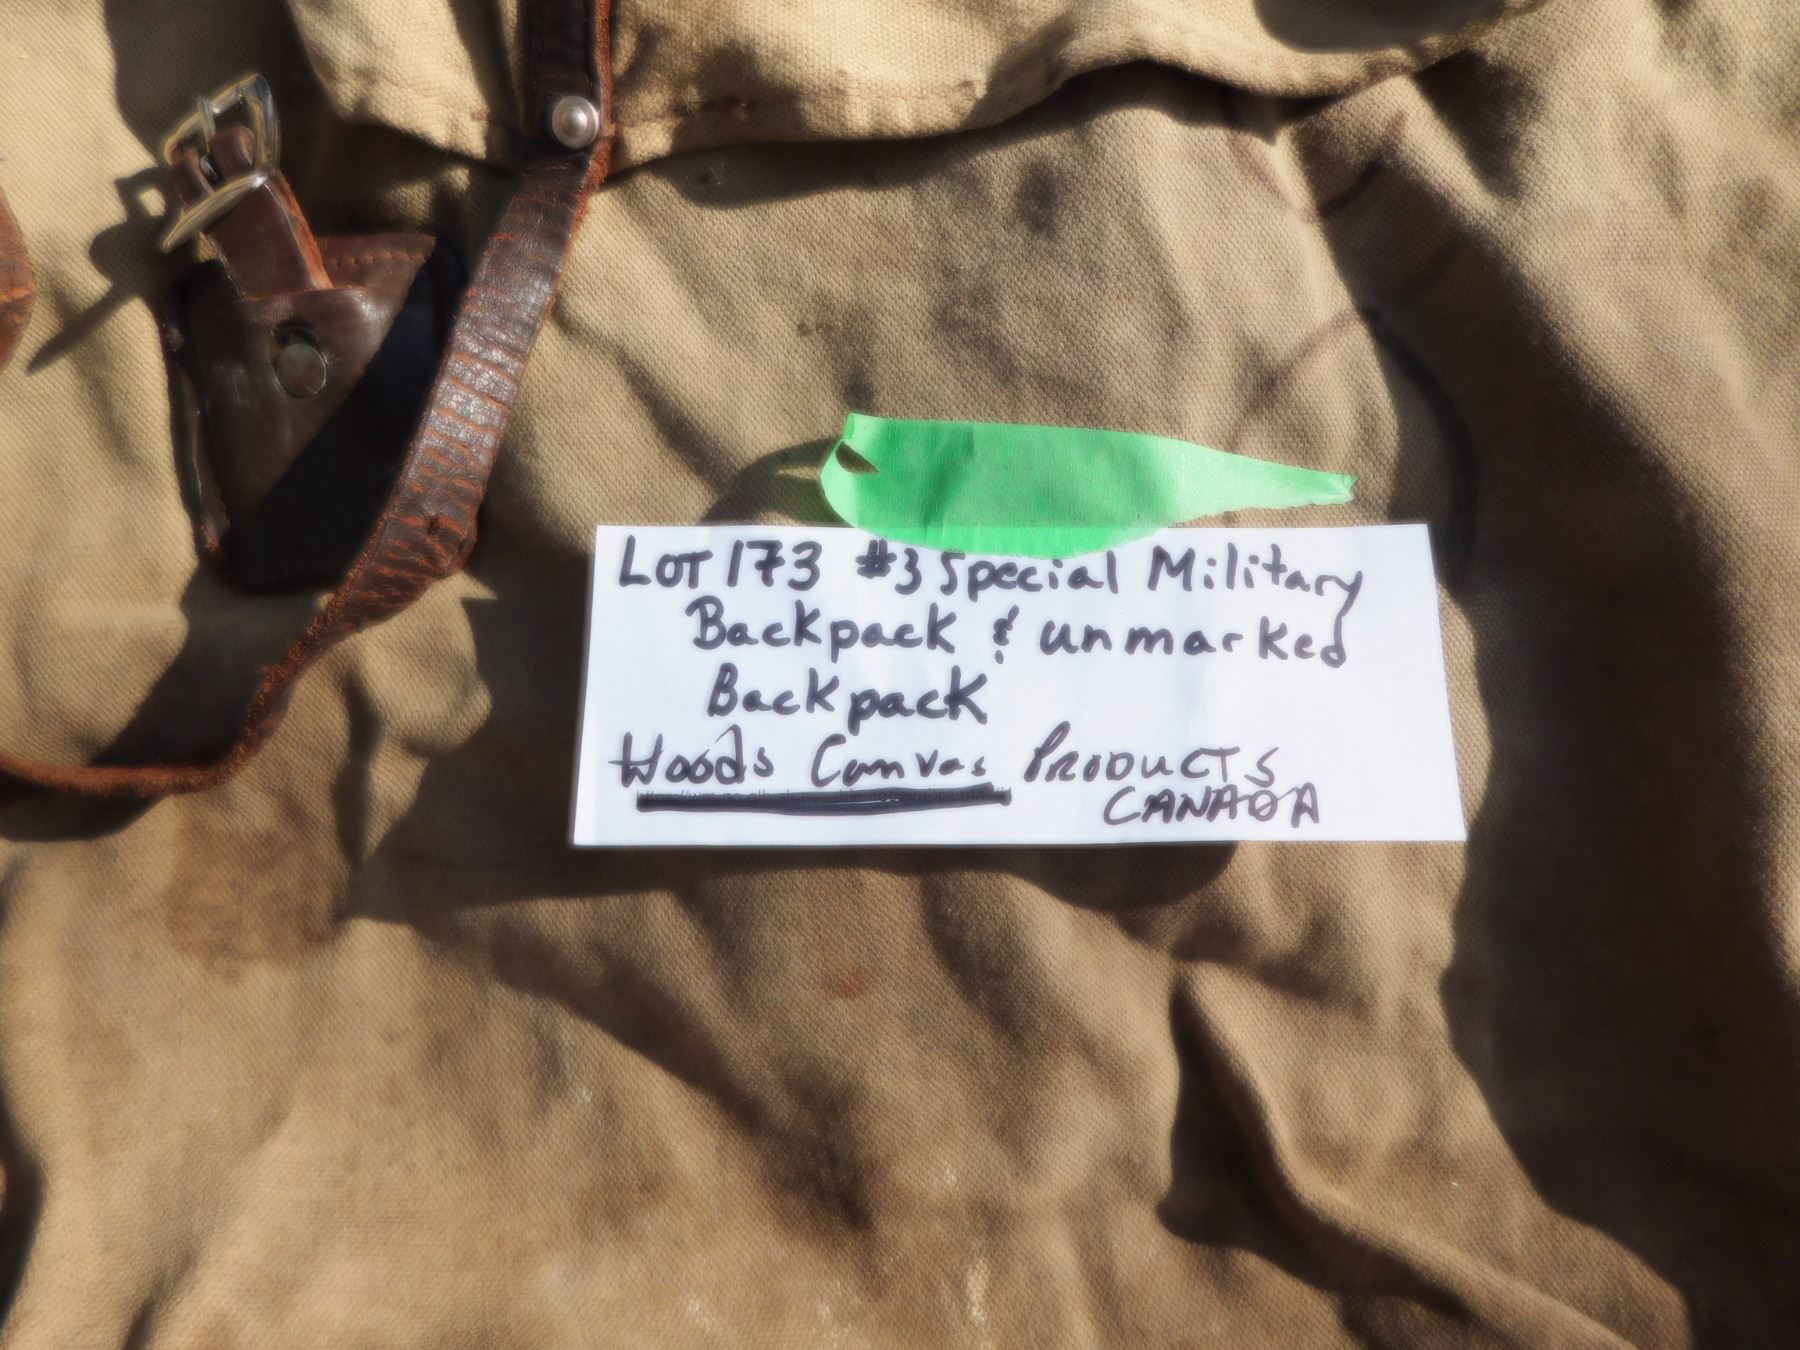 LOT 173 #3 Special Military
Backpack & unmarked
Backpack
Woods Canvas PRODUCTS
CANADA